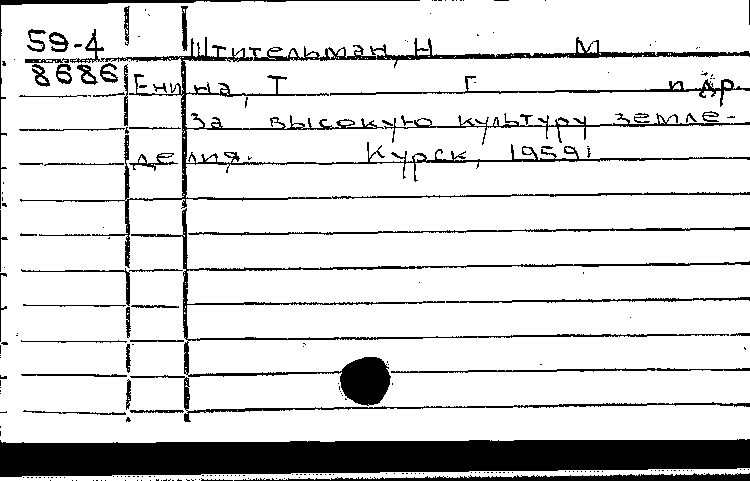 59-4 Штительман, Н М
8686 Енина, Т Г и др.
За высокую культуру земле-
делия. Курск, 1959